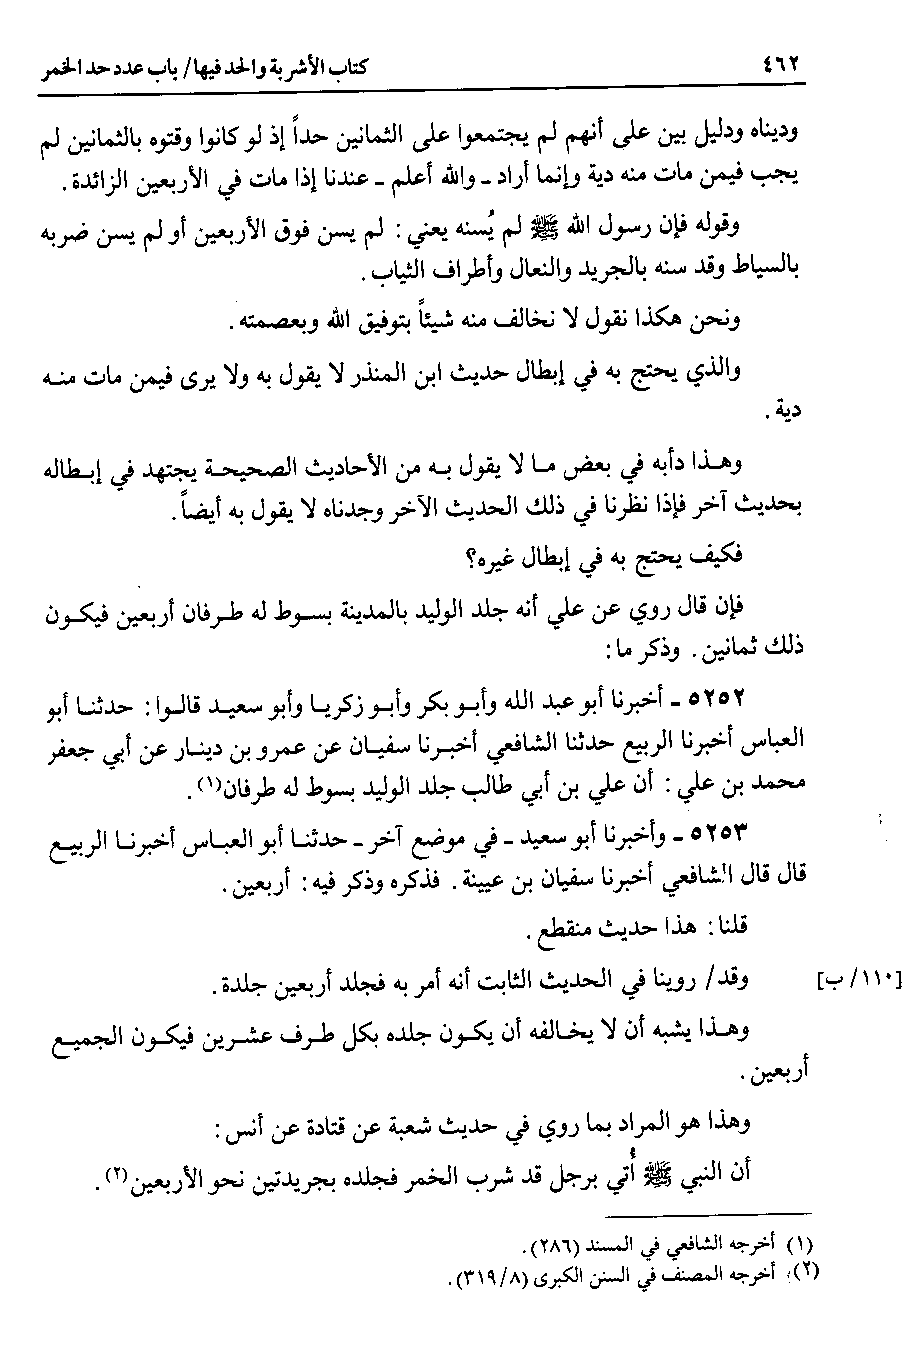 ٤٦٢ كتاب الأشربة والحد فيها/ باب عدد حد الخمر
وديناه ودليل بين على أنهم لم يجتمعوا على الثمانين حداً إذ لو كانوا وقتوه بالثمانين لم
يجب فيمن مات منه دية وإنما أراد ـ والله أعلم ـ عندنا إذا مات في الأربعين الزائدة.
وقوله فإن رسول الله ﷺ لم يُسنه يعني: لم يسن فوق الأربعين أو لم يسن ضربه
بالسياط وقد سنه بالجريد والنعال وأطراف الثياب.
ونحن هكذا نقول لا نخالف منه شيئاً بتوفيق الله وبعصمته.
والذي يحتج به في إبطال حديث ابن المنذر لا يقول به ولا يرى فيمن مات منه
دية.
وهذا دأبه في بعض ما لا يقول به من الأحاديث الصحيحة يجتهد في إبطاله
بحديث آخر فإذا نظرنا في ذلك الحديث الآخر وجدناه لا يقول به أيضاً.
فكيف يحتج به في إبطال غيره؟
فإن قال روي عن علي أنه جلد الوليد بالمدينة بسوط له طرفان أربعين فيكون
ذلك ثمانين. وذكر ما:
٥٢٥٢ ـ أخبرنا أبو عبد الله وأبو بكر وأبو زكريا وأبو سعيد قالوا: حدثنا أبو
العباس أخبرنا الربيع حدثنا الشافعي أخبرنا سفيان عن عمرو بن دينار عن أبي جعفر
محمد بن علي: أن علي بن أبي طالب جلد الوليد بسوط له طرفان(١).
٥٢٥٣ ـ وأخبرنا أبو سعيد ـ في موضع آخر ـ حدثنا أبو العباس أخبرنا الربيع
قال قال الشافعي أخبرنا سفيان بن عيينة. فذكره وذكر فيه: أربعين.
قلنا: هذا حديث منقطع.
[١١٠/ ب] وقد/ روينا في الحديث الثابت أنه أمر به فجلد أربعين جلدة.
وهذا يشبه أن لا يخالفه أن يكون جلده بكل طرف عشرين فيكون الجميع
أربعين.
وهذا هو المراد بما روي في حديث شعبة عن قتادة عن أنس:
أن النبي ﷺ أُتي برجل قد شرب الخمر فجلده بجريدتين نحو الأربعين(٢).
(١) أخرجه الشافعي في المسند (٢٨٦).
(٢) أخرجه المصنف في السنن الكبرى (٣١٩/٨).